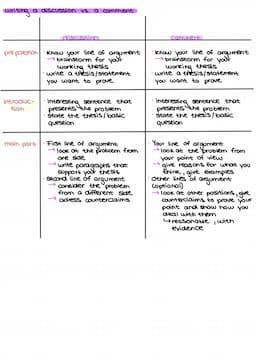 writing a discussion vs. a comment
discussion
comment
preparation
· know your line of argument
→ brainstorm for your
working thesis
· write a thesis/statement
you want to prove
· know your line of argument
→ brainstorm for your
working thesis
· write a thesis/statement
you want to prove
introduc-
tion
· interesting sentence that
presents the problem
· state the thesis/basic
question
· interesting sentence that
presents the problem
· state the thesis/basic
question
main part
· First line of argument
→ look at the problem from
one side
→ write paragraphs that
support your thesis
· second line of argument
→ consider the problem
from a different side
→ adress counterclaims
· Your line of argument
→ look at the problem from
your point of view
→ give reasons for what you
think, give examples
· Other lines of argument
(optional)
→ look at other positions, give
counterclaims to prove your
point and show how you
deal with them
↳ reasonable, with
evidence